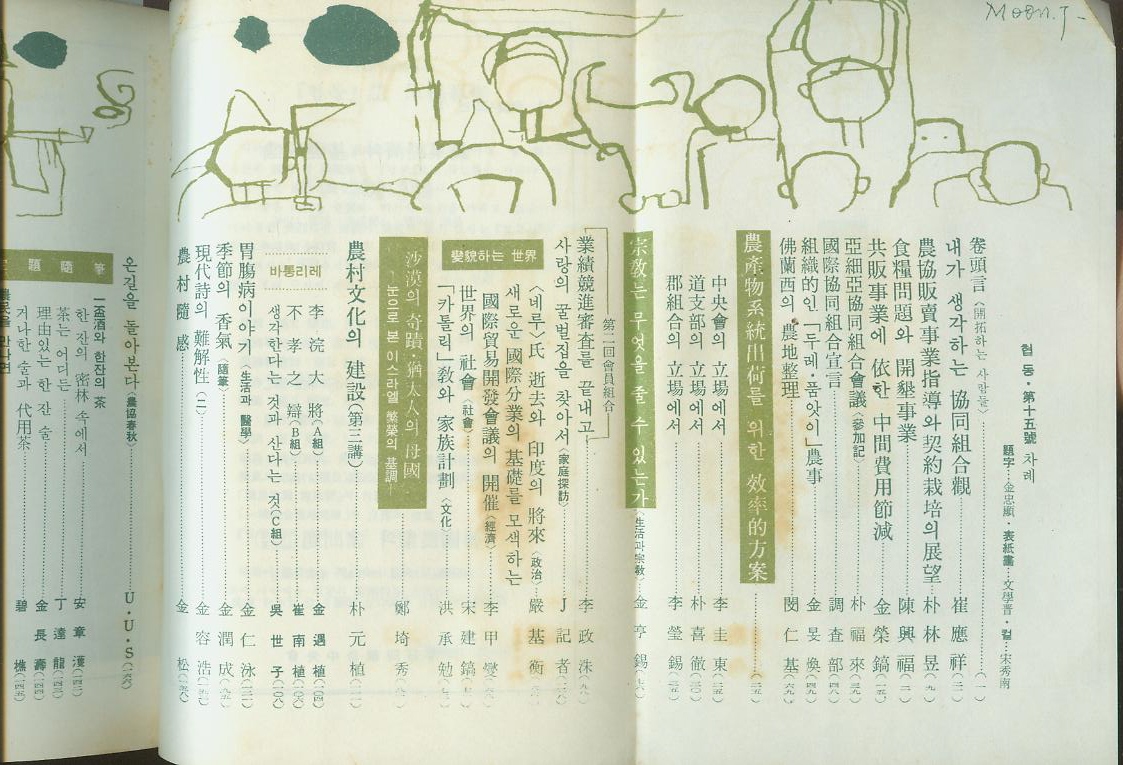 Moon.J-
협동·第十五號 차례
題字…金忠顯·表紙畵…文學晋·컽…宋秀南
卷頭言〈開拓하는 사람들〉
내가 생각하는 協同組合觀 崔應祥
農協販賣事業指導와 契約栽培의 展望 朴林昱
食糧問題와 開墾事業 陳興福
共販事業에 依한 中間費用節減 金榮鎬
亞細亞協同組合會議〈參加記〉 朴福來
國際協同組合宣言 調査部
組織的인「두레·품앗이」農事 金旻煥
佛蘭西의 農地整理 閔仁基
農產物系統出荷를 위한 效率的方案
中央會의 立場에서 李圭東
道支部의 立場에서 朴喜徹
郡組合의 立場에서 李瑩錫
宗敎는 무엇을 줄 수 있는가〈生活과 宗敎〉 金亨錫
第二回會員組合
業績競進審査를 끝내고 李政洙
사랑의 꿀벌집을 찾아서〈家庭探訪〉 J記者
變貌하는 世界
〈네루〉氏 逝去와 印度의 將來〈政治〉 嚴基衡
새로운 國際分業의 基礎를 모색하는
國際貿易開發會議의 開催〈經濟〉 李甲燮
世界의 社會〈社會〉 宋建鎬
「카톨릭」敎와 家族計劃〈文化 洪承勉
沙漠의 奇蹟·猶太人의 母國
눈으로 본 이스라엘 繁榮의 基調 鄭埼秀
農村文化의 建設〈第三講〉 朴元植
바통리레
李浣大將〈A組〉 金遇植
不孝之辯〈B組〉 崔南植
생각한다는 것과 산다는 것〈C組〉 吳世子
胃腸病이야기〈生活과 醫學〉 金仁泳
季節의 香氣〈隨筆〉 金潤成
現代詩의 難解性(二) 金容浩
農村隨感 金松
온길을 돌아본다〈農協春秋〉 U·U·S
題隨筆
一盃酒와 한잔의 茶
한 잔의 密林 속에서 安章
茶는 어디든 丁達龍
理由있는 한 잔 술 金長壽
거나한 술과 代用茶 碧樵